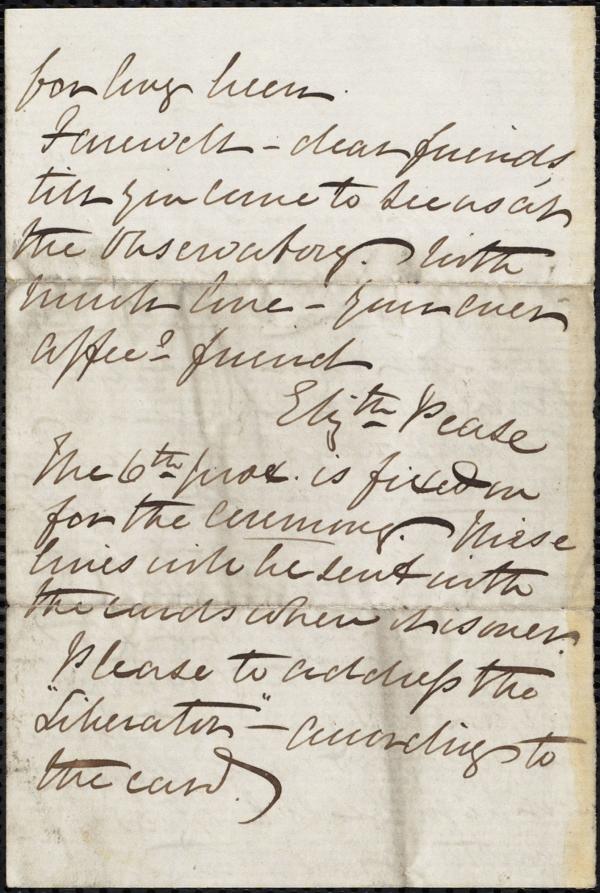 for long been.
Farewell – dear friends,
till you come to see us at
the Observatory. With
much love – your ever
affec.^t friend
Eliz^th Pease
The 6^th prox. is fixed on
for the ceremony. These
lines will be sent with
the cards when it is over.
Please to address the
"Liberator" – according to
the card.)